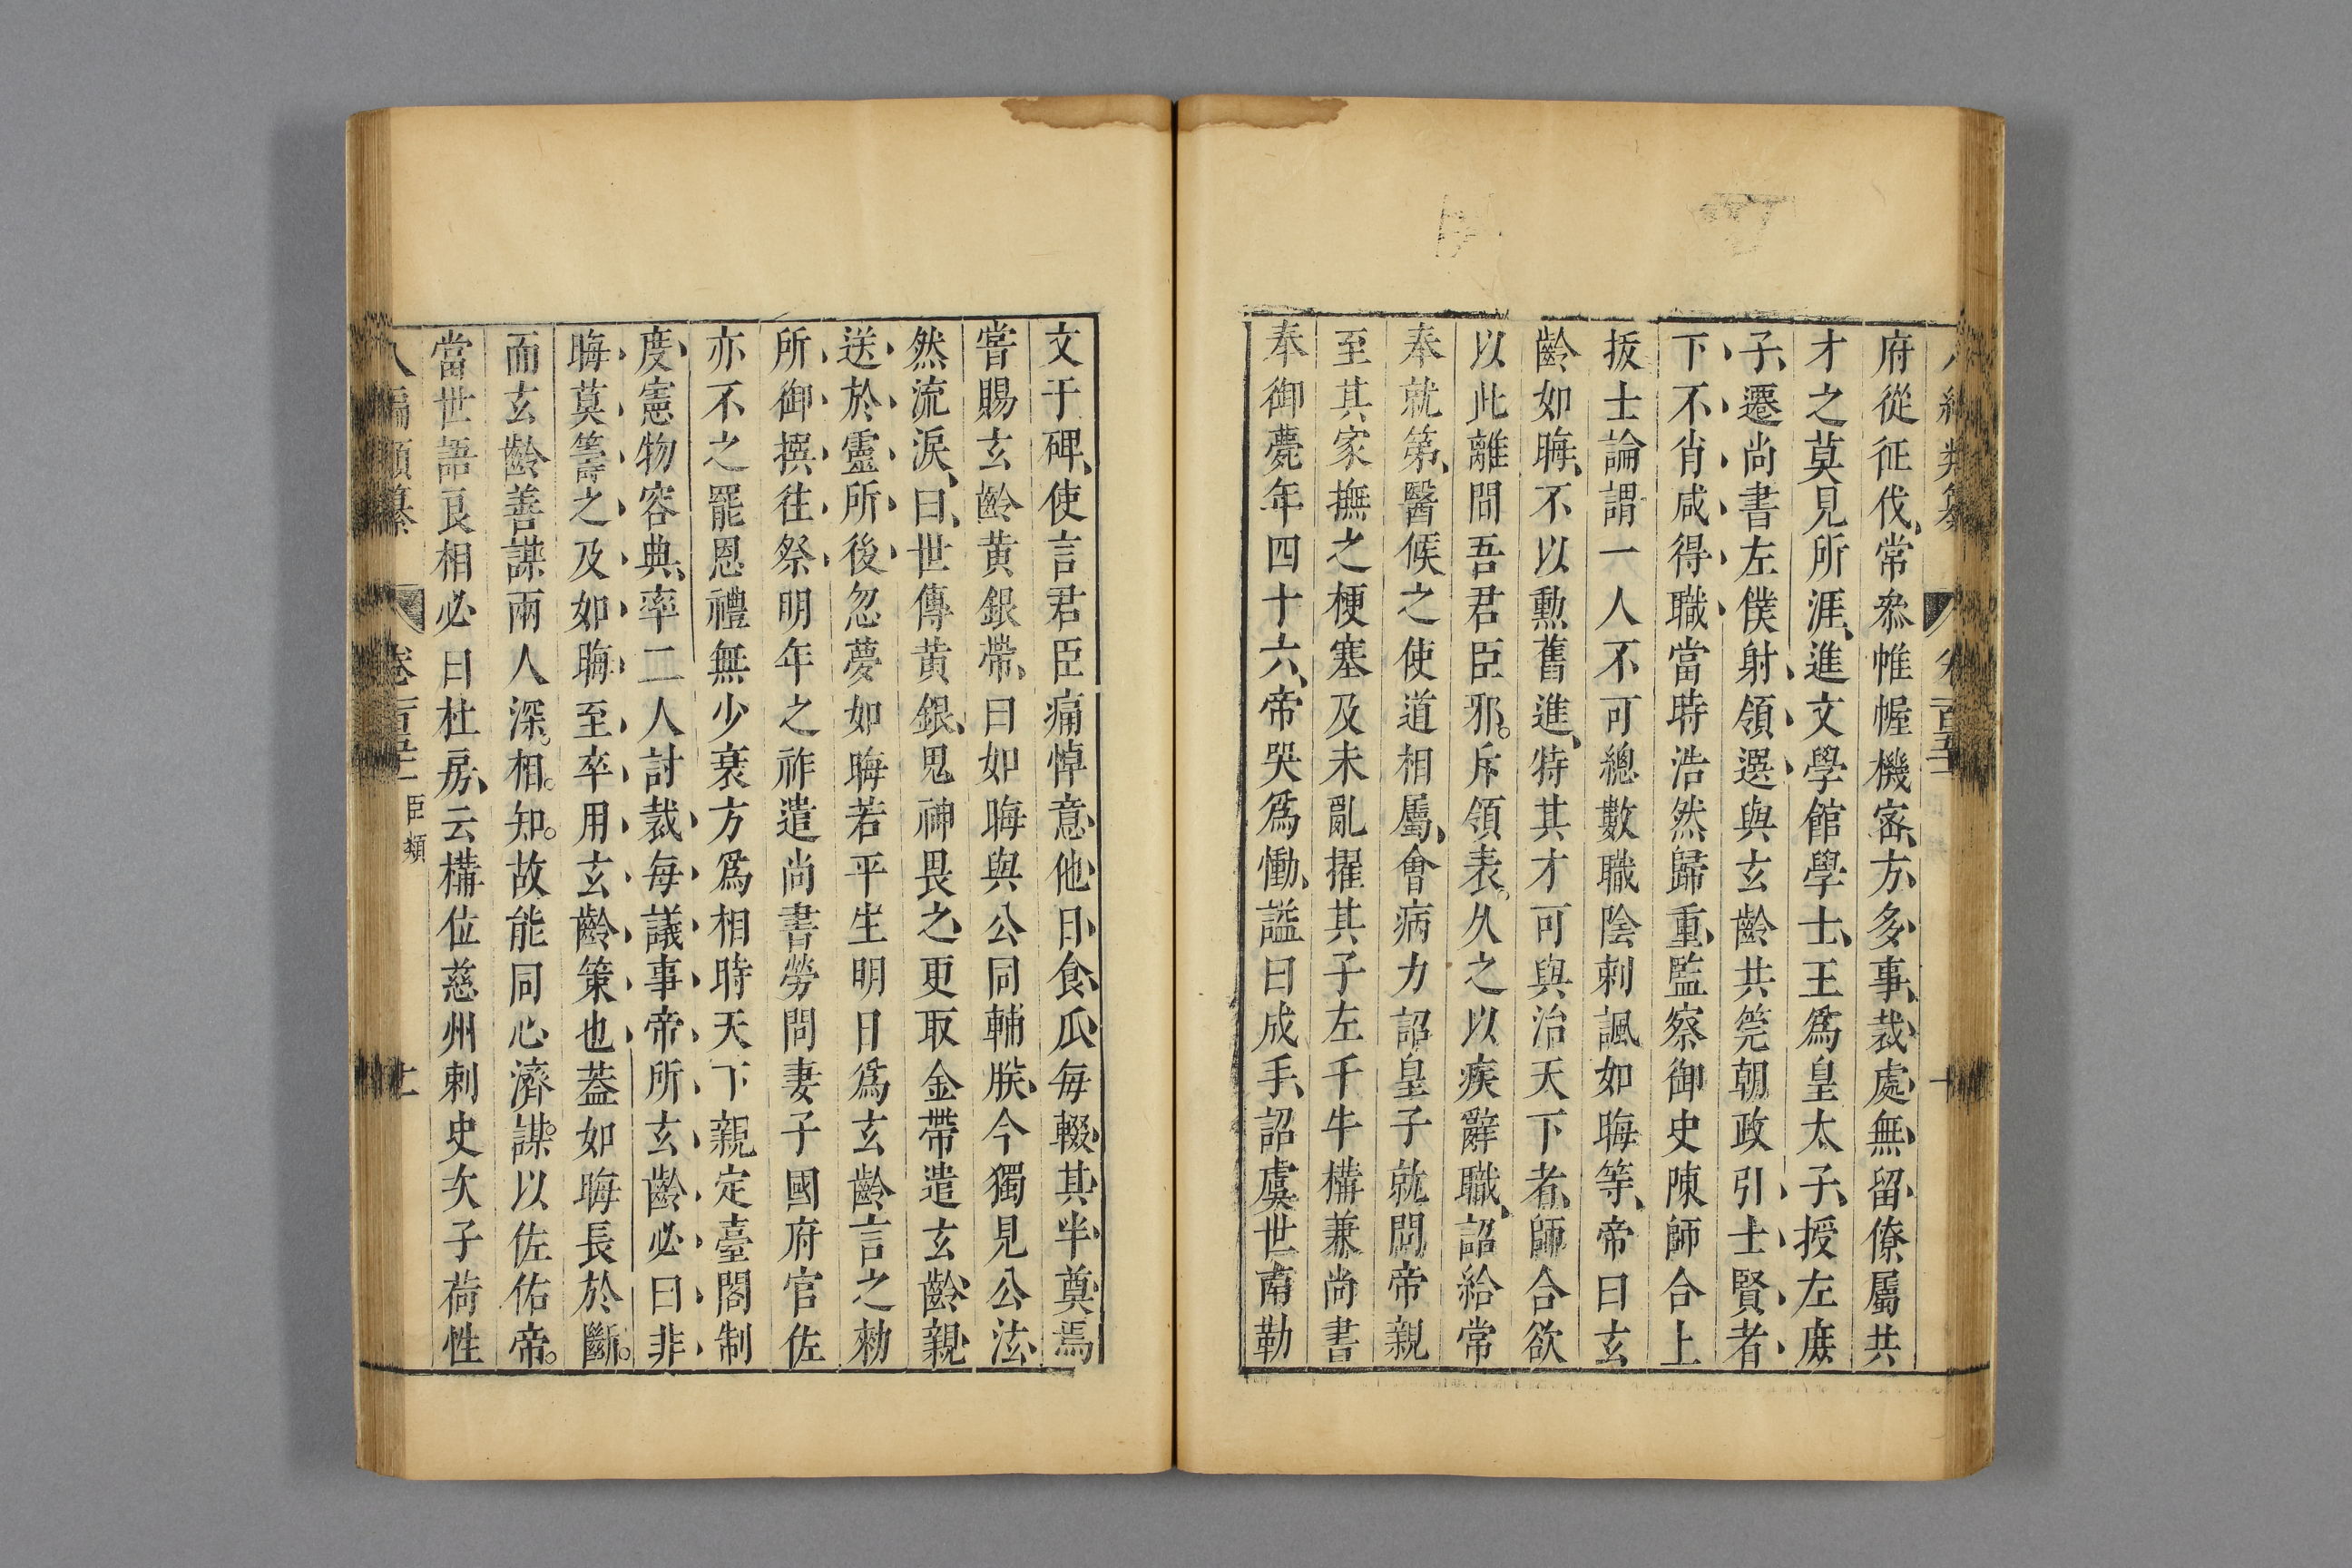 府從征伐常叅帷幄機密方多事裁處無留僚屬共
才之莫見所涯進文學館學士王爲皇太子授左庶
子遷尚書左僕射領選與玄齡共筦朝政引士賢者
下不肖咸得職當時浩然歸重監察御史陳師合上
拔士論謂一人不可總數職陰刺諷如晦等帝曰玄
齡如晦不以勲舊進特其才可與治天下者師合欲
以此離間吾君臣邪斥領表久之以疾辭職詔給常
奉就第醫候之使道相屬會病力詔皇子就問帝親
至其家撫之梗塞及未亂擢其子左千牛構兼尚書
奉御薨年四十六帝哭爲慟謚曰成手詔虞世南勒
文于碑使言君臣痛悼意他日食瓜每輟其半奠焉
嘗賜玄齡黄銀帶曰如晦與公同輔朕今獨見公泫
然流淚曰世傳黄銀鬼神畏之更取金帶遣玄齡親
送於靈所後忽夢如晦若平生明日爲玄齡言之勑
所御撰往祭明年之祚遣尚書勞問妻子國府官佐
亦不之罷恩禮無少衰方爲相時天下親定臺閣制
度憲物容典率二人討裁每議事帝所玄齡必曰非
晦莫籌之及如晦至卒用玄齡策也葢如晦長於斷
而玄齡善謀兩人深相知故能同心濟謀以佐佑帝
當世語良相必曰杜房云構位慈州刺史次子荷性
八編類纂 卷一百五十二 臣類 十一